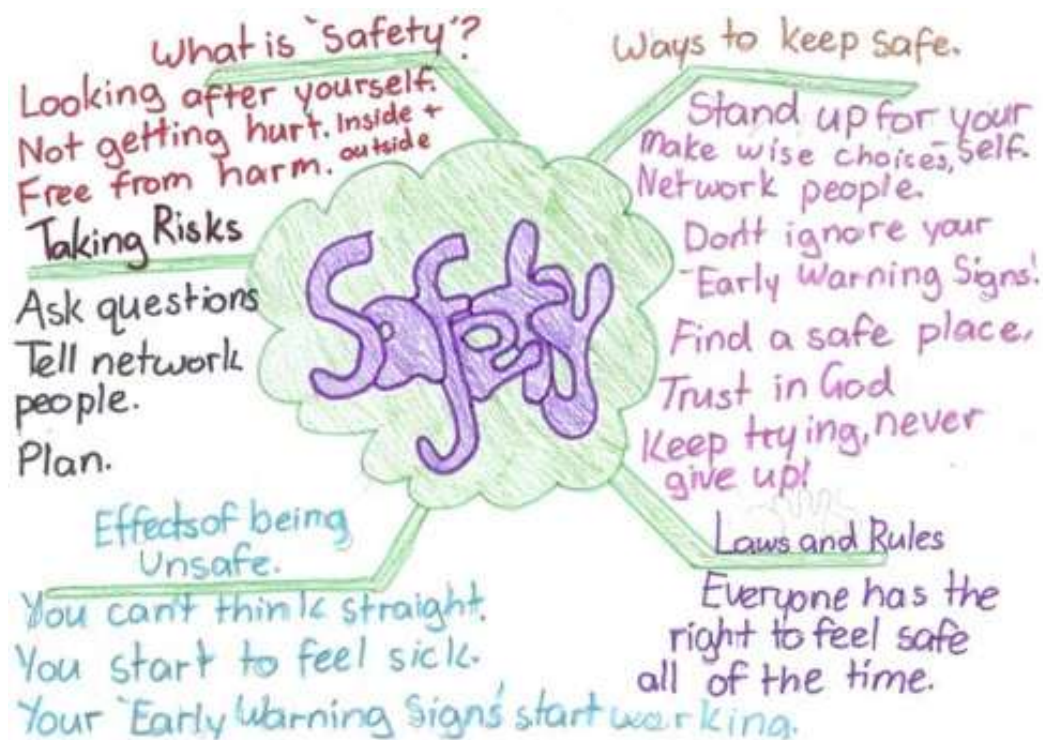 What is 'Safety'?
Looking after yourself.
Not getting hurt. Inside +
outside
Free from harm.
Taking Risks
Ask questions
Tell network
people.
Plan.
Effects of being
Unsafe.
You can't think straight.
You start to feel sick.
Your 'Early Warning Signs' start working.
Safety
Ways to keep safe.
Stand up for your
self.
Make wise choices,
Network people.
Don't ignore your
Early Warning Signs!
Find a safe place,
Trust in God
Keep trying, never
give up!
Laws and Rules
Everyone has the
right to feel safe
all of the time.